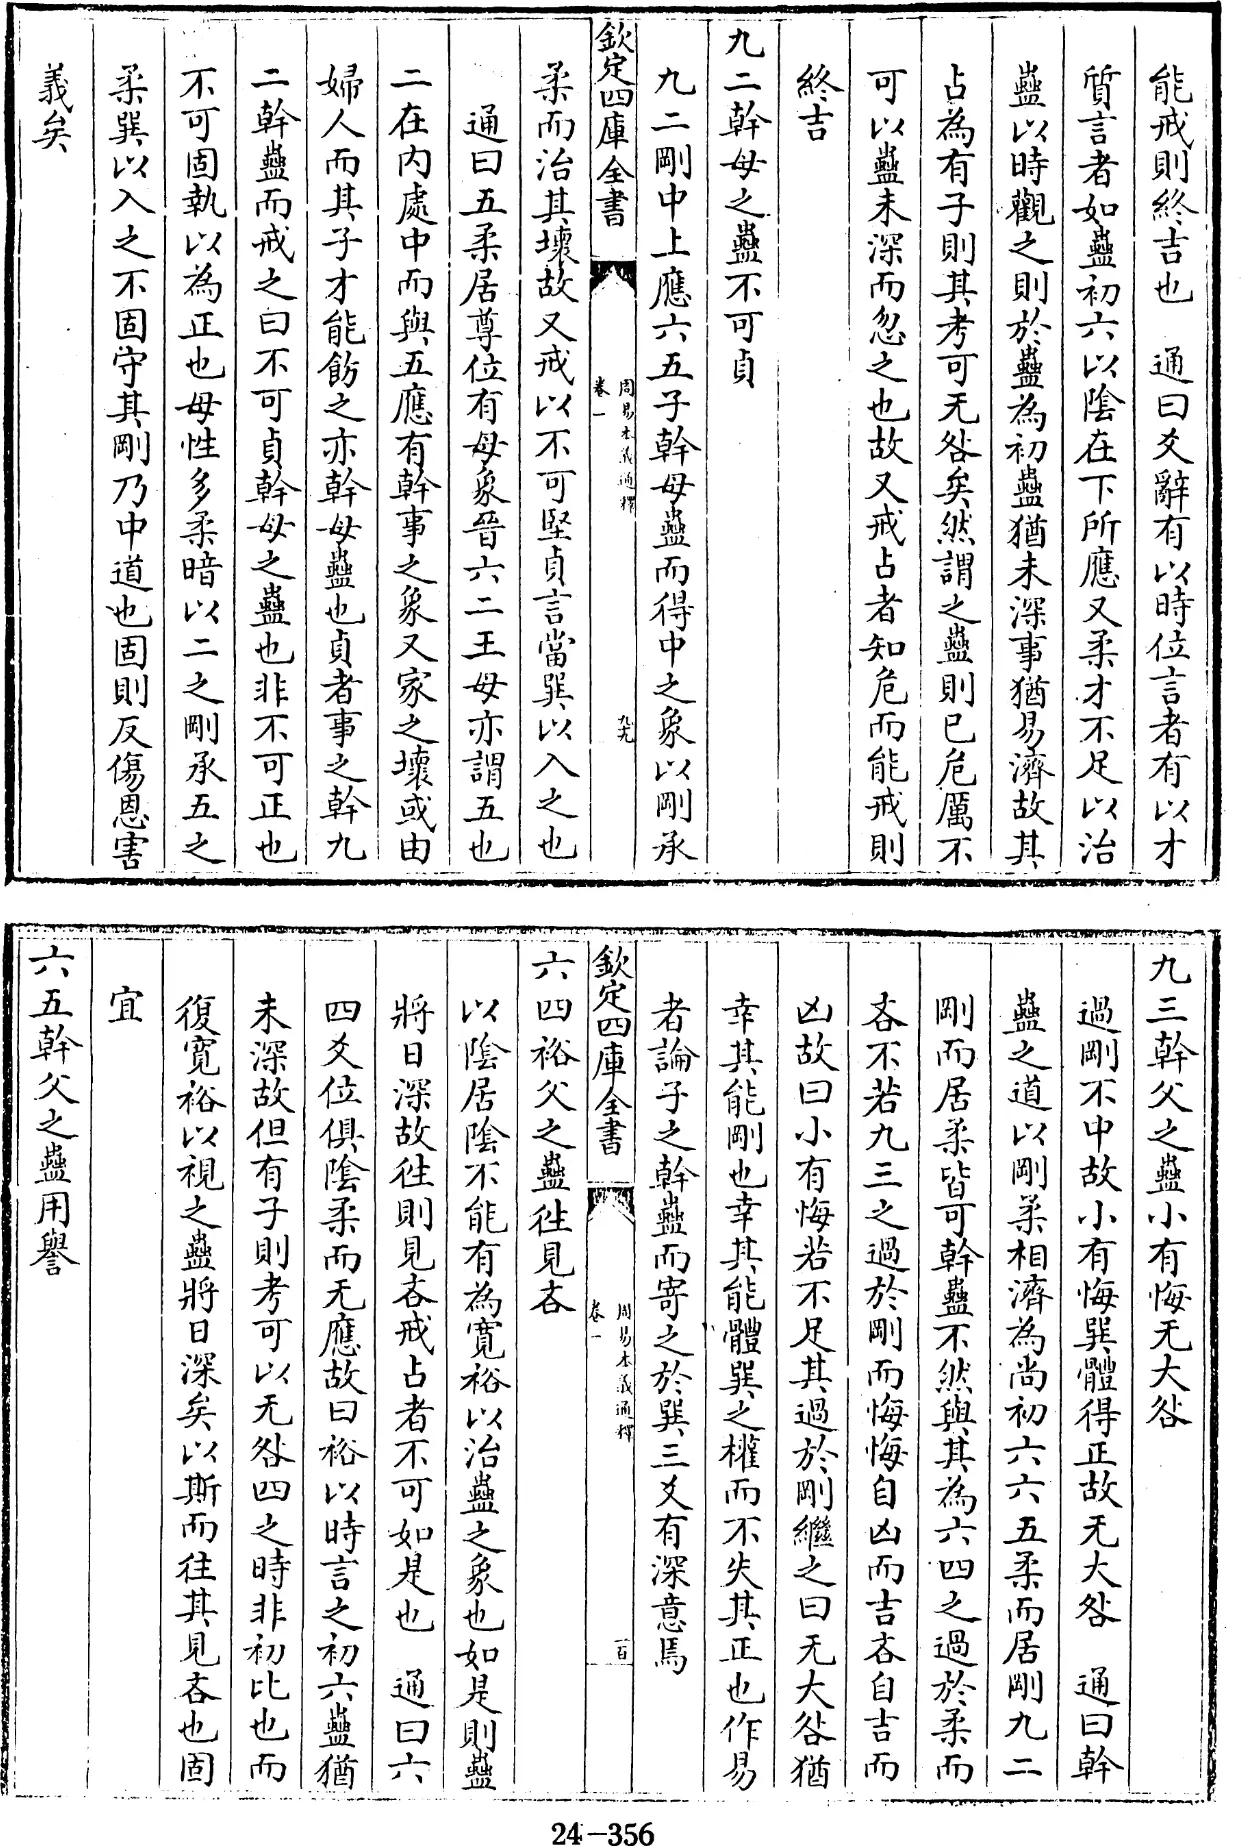 能戒則終吉也　通曰爻辭有以時位言者有以才
質言者如蠱初六以陰在下所應又柔才不足以治
蠱以時觀之則於蠱為初蠱猶未深事猶易濟故其
占為有子則其考可无咎矣然謂之蠱則已危厲不
可以蠱未深而忽之也故又戒占者知危而能戒則
終吉
九二幹母之蠱不可貞
九二剛中上應六五子幹母蠱而得中之象以剛承
欽定四庫全書
周易本義通釋
卷一
九九
柔而治其壞故又戒以不可堅貞言當巽以入之也
通曰五柔居尊位有母象晉六二王母亦謂五也
二在内處中而與五應有幹事之象又家之壞或由
婦人而其子才能飭之亦幹母蠱也貞者事之幹九
二幹蠱而戒之曰不可貞幹母之蠱也非不可正也
不可固執以為正也母性多柔暗以二之剛承五之
柔巽以入之不固守其剛乃中道也固則反傷恩害
義矣
九三幹父之蠱小有悔无大咎
過剛不中故小有悔巽體得正故无大咎　通曰幹
蠱之道以剛柔相濟為尚初六六五柔而居剛九二
剛而居柔皆可幹蠱不然與其為六四之過於柔而
吝不若九三之過於剛而悔悔自凶而吉吝自吉而
凶故曰小有悔若不足其過於剛繼之曰无大咎猶
幸其能剛也幸其能體巽之權而不失其正也作易
者論子之幹蠱而寄之於巽三爻有深意焉
欽定四庫全書
周易本義通釋
卷一
一百
六四裕父之蠱往見吝
以陰居陰不能有為寛裕以治蠱之象也如是則蠱
將日深故往則見吝戒占者不可如是也　通曰六
四爻位俱陰柔而无應故曰裕以時言之初六蠱猶
未深故但有子則考可以无咎四之時非初比也而
復寛裕以視之蠱將日深矣以斯而往其見吝也固
宜
六五幹父之蠱用譽
24-356